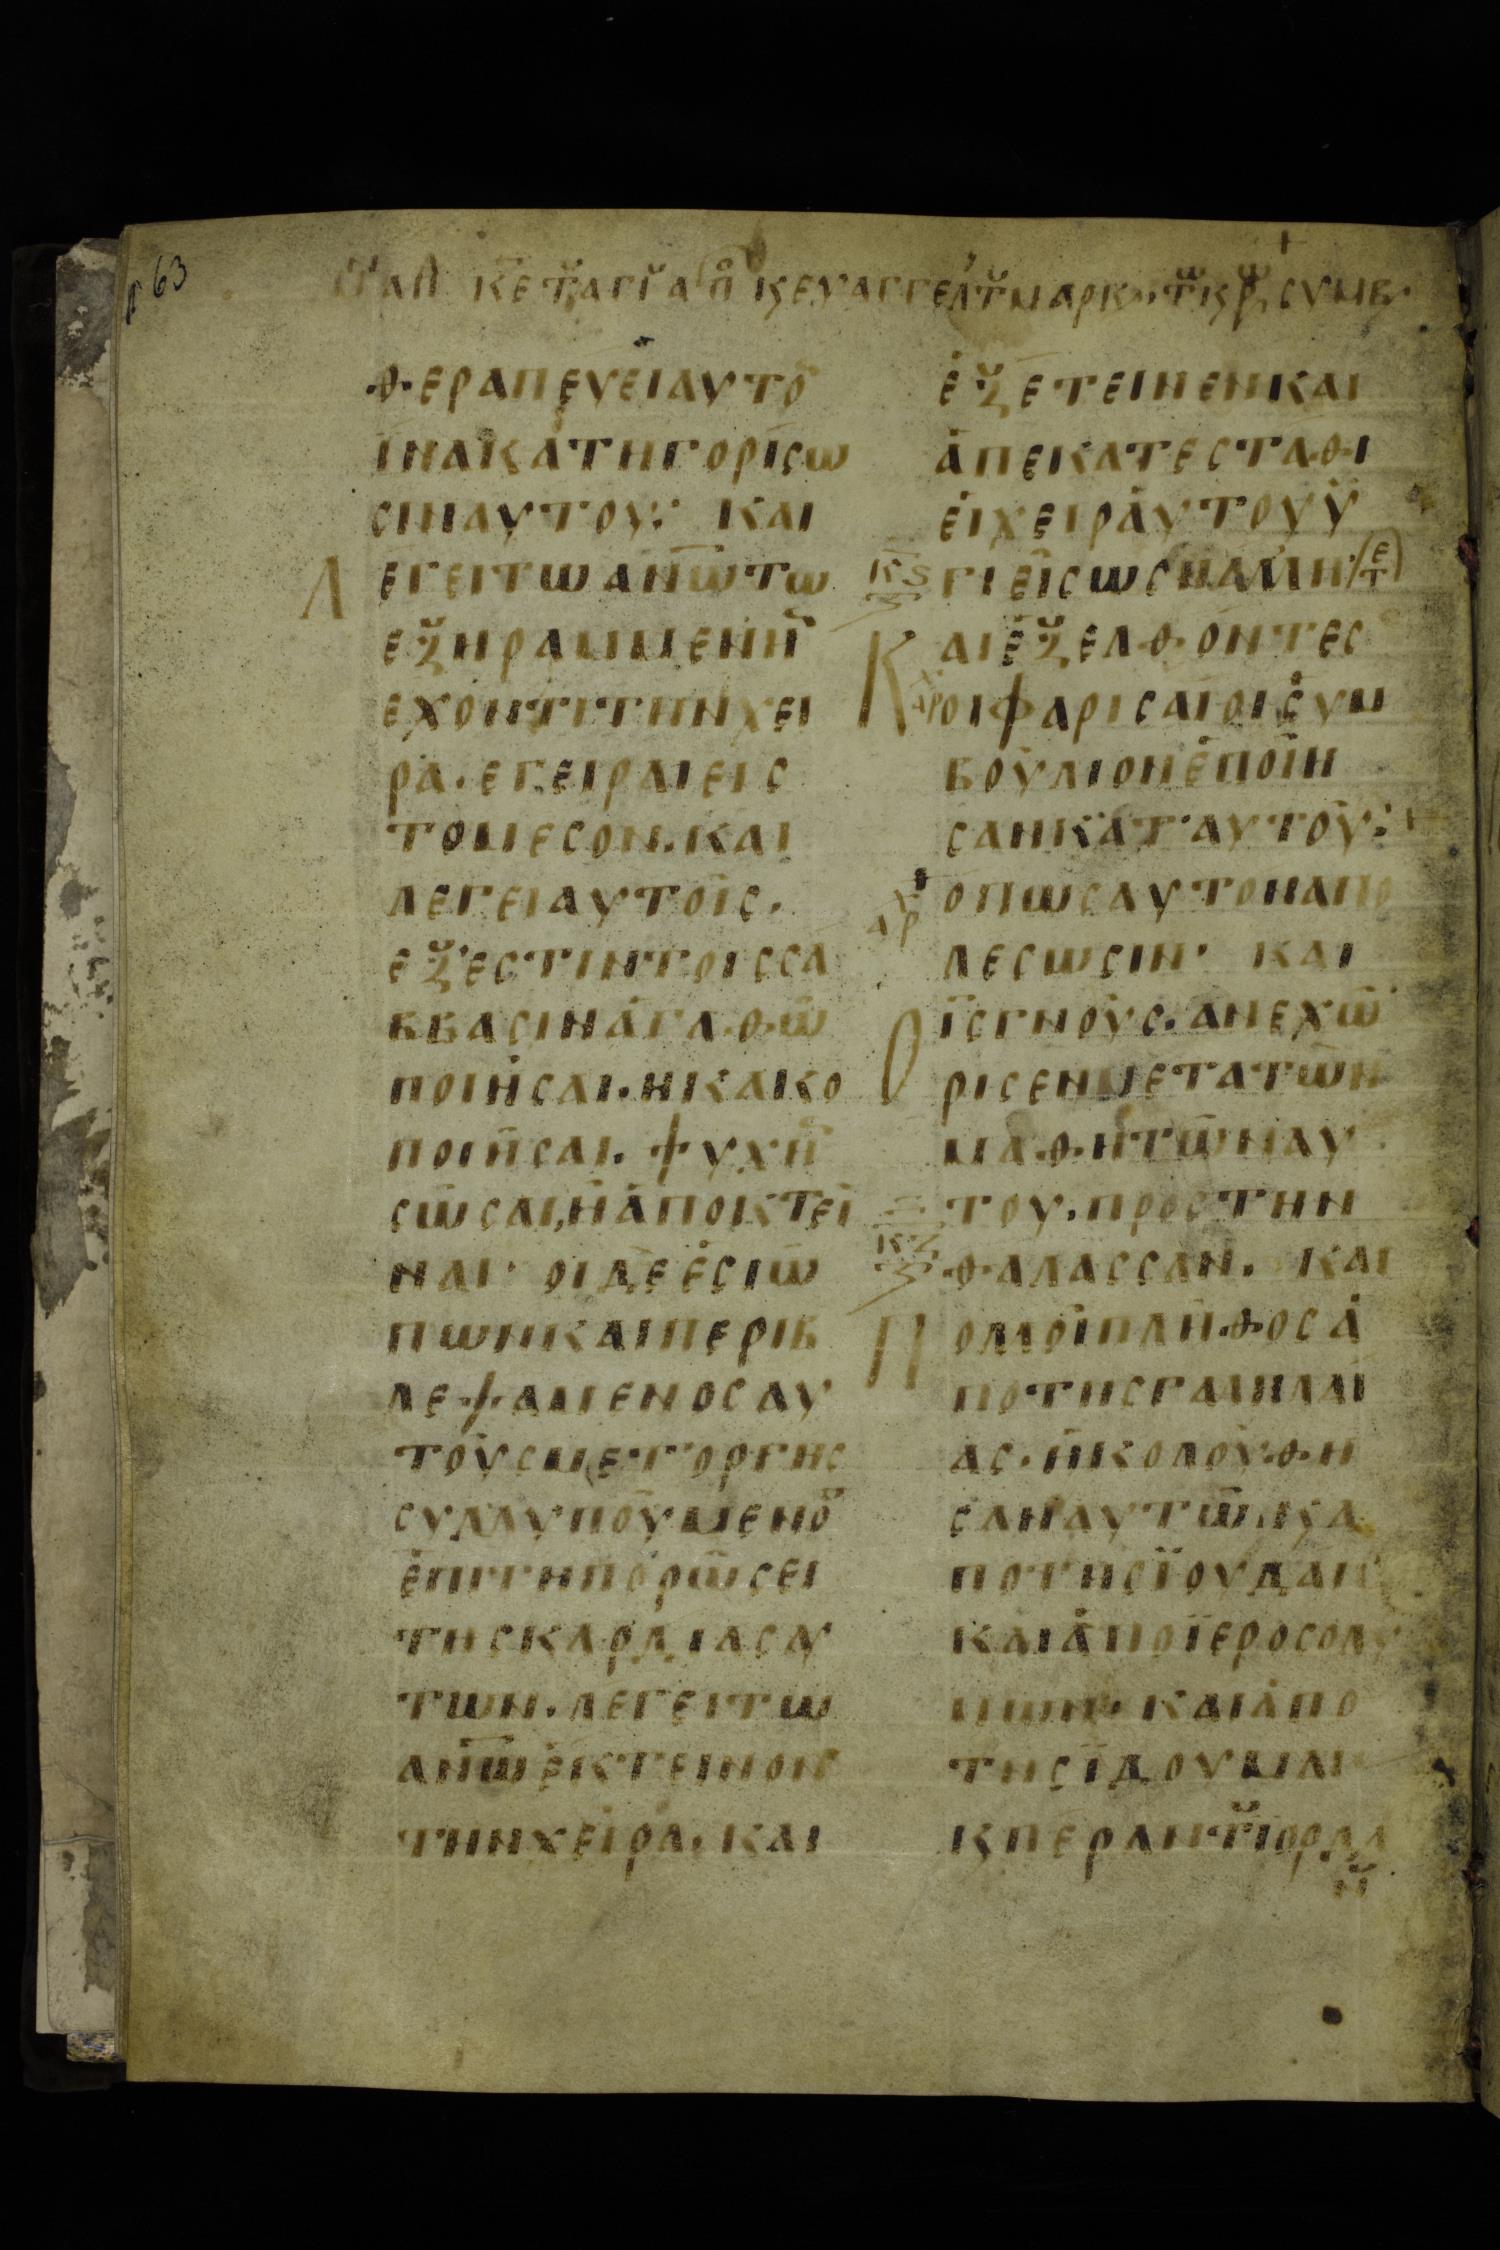 163
θεραπευει αυτο̅
ινα κατηγορισω
σιν αυτου: και
λεγει τω αν̅ω̅ τω
εξηραμμενη̅
εχοντι την χει
ρα. εγειραι εις
το μεσον. και
λεγει αυτοις.
εξεστιν τοις σα
ββασιν αγαθω̅
ποιησαι. η κακο
ποιησαι. ψυχη̅
σωσαι, η αποκτει
ναι· οι δε εσιω̅
πων και περιβ
λεψαμενος αυ
τους με τ οργης
συλλυπουμενο
επι τη πορωσει
της καρδιας αυ
των. λεγει τω
αν̅ω̅ εκτεινον
την χειρα. και
εξετεινεν και
απεκατεσταθι
ει χειρ αυτου ϋ
κς γιεις ως η αλλη· (ετ)
και εξελθοντες
αρχ οι φαρισαιοι συμ
βουλιον εποιη
σαν κατ αυτου:
αρχ οπως αυτον απο
λεσωσιν· και
ο ις̅ γνους. ανεχω̅
ρισεν μετα των
μαθητων αυ
του. προς την
κζ θαλασσαν. και
πολλοι πληθος α
πο της γαλιλαι
ας. ηκολουθη
σαν αυτω, κ α
πο της ϊουδαις
και απο ϊεροσολυ
μων· και απο
της ϊδουμαι
κ περαν τ ιορδα
ν